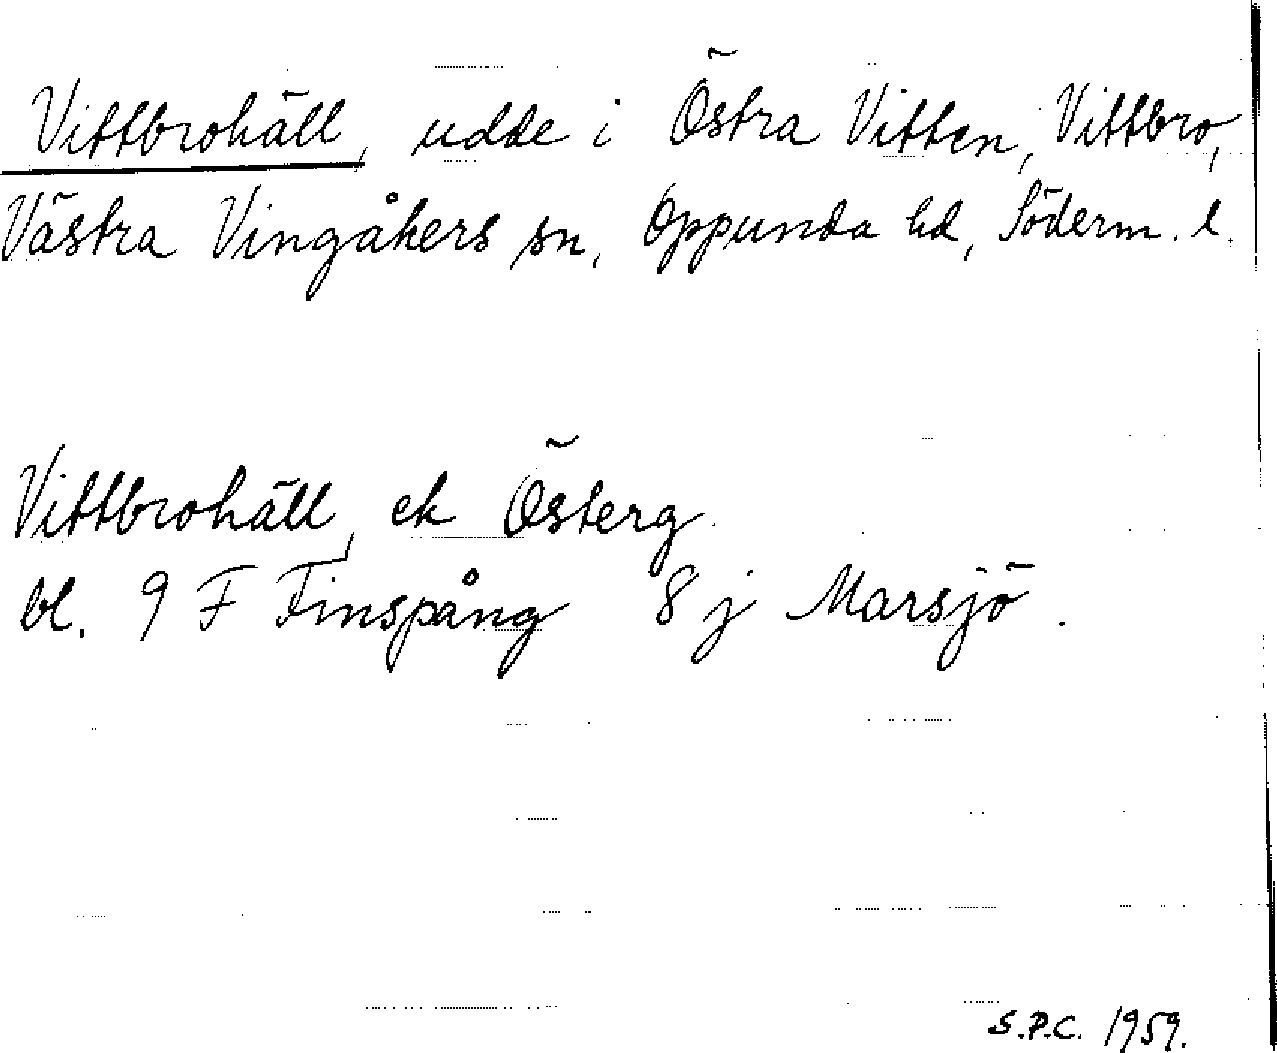 Vittbrohäll, udde i Östra Vitten, Vittbro,
Västra Vingåkers sn, Oppunda hd, Söderm. l.
Vittbrohäll, ek Österg
bl. 9 F Finspång 8 j Marsjö.
S.P.C. 1959.